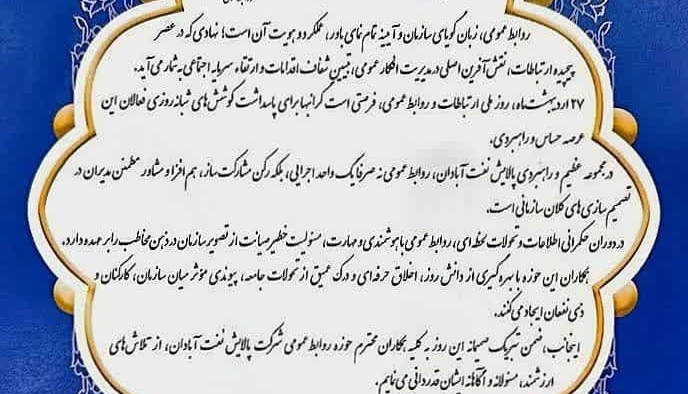 روابط عمومی، زبان گویای سازمان و آیینه تمام نمای باور، عملکرد و هویت آن است؛ نهادی که در عصر
پیچیده ارتباطات، نقش آفرین اصلی در مدیریت افکار عمومی، تبیین شفاف اقدامات و ارتقاء سرمایه اجتماعی به شمار می آید.
۲۷ اردیبهشت ماه، روز ملی ارتباطات و روابط عمومی، فرصتی است گرانبها برای پاسداشت کوشش های شبانه روزی فعالان این
عرصه حساس و راهبردی.
در مجموعه عظیم و راهبردی پالایش نفت آبادان، روابط عمومی نه صرفا یک واحد اجرایی، بلکه رکن مشارکت ساز، هم افزا و مشاور مطمئن مدیران در
تصمیم سازی های کلان سازمانی است.
در دوران حکمرانی اطلاعات و تحولات لحظه ای، روابط عمومی با هوشمندی و مهارت، مسئولیت خطیر صیانت از تصویر سازمان در ذهن مخاطب را بر عهده دارد.
همکاران این حوزه با بهره گیری از دانش روز، اخلاق حرفه ای و درک عمیق از تحولات جامعه، پیوندی مؤثر میان سازمان، کارکنان و
ذی نفعان ایجاد می کنند.
اینجانب، ضمن تبریک صمیمانه این روز به کلیه همکاران محترم حوزه روابط عمومی شرکت پالایش نفت آبادان، از تلاش های
ارزشمند، مسئولانه و آگاهانه ایشان قدردانی می نمایم.